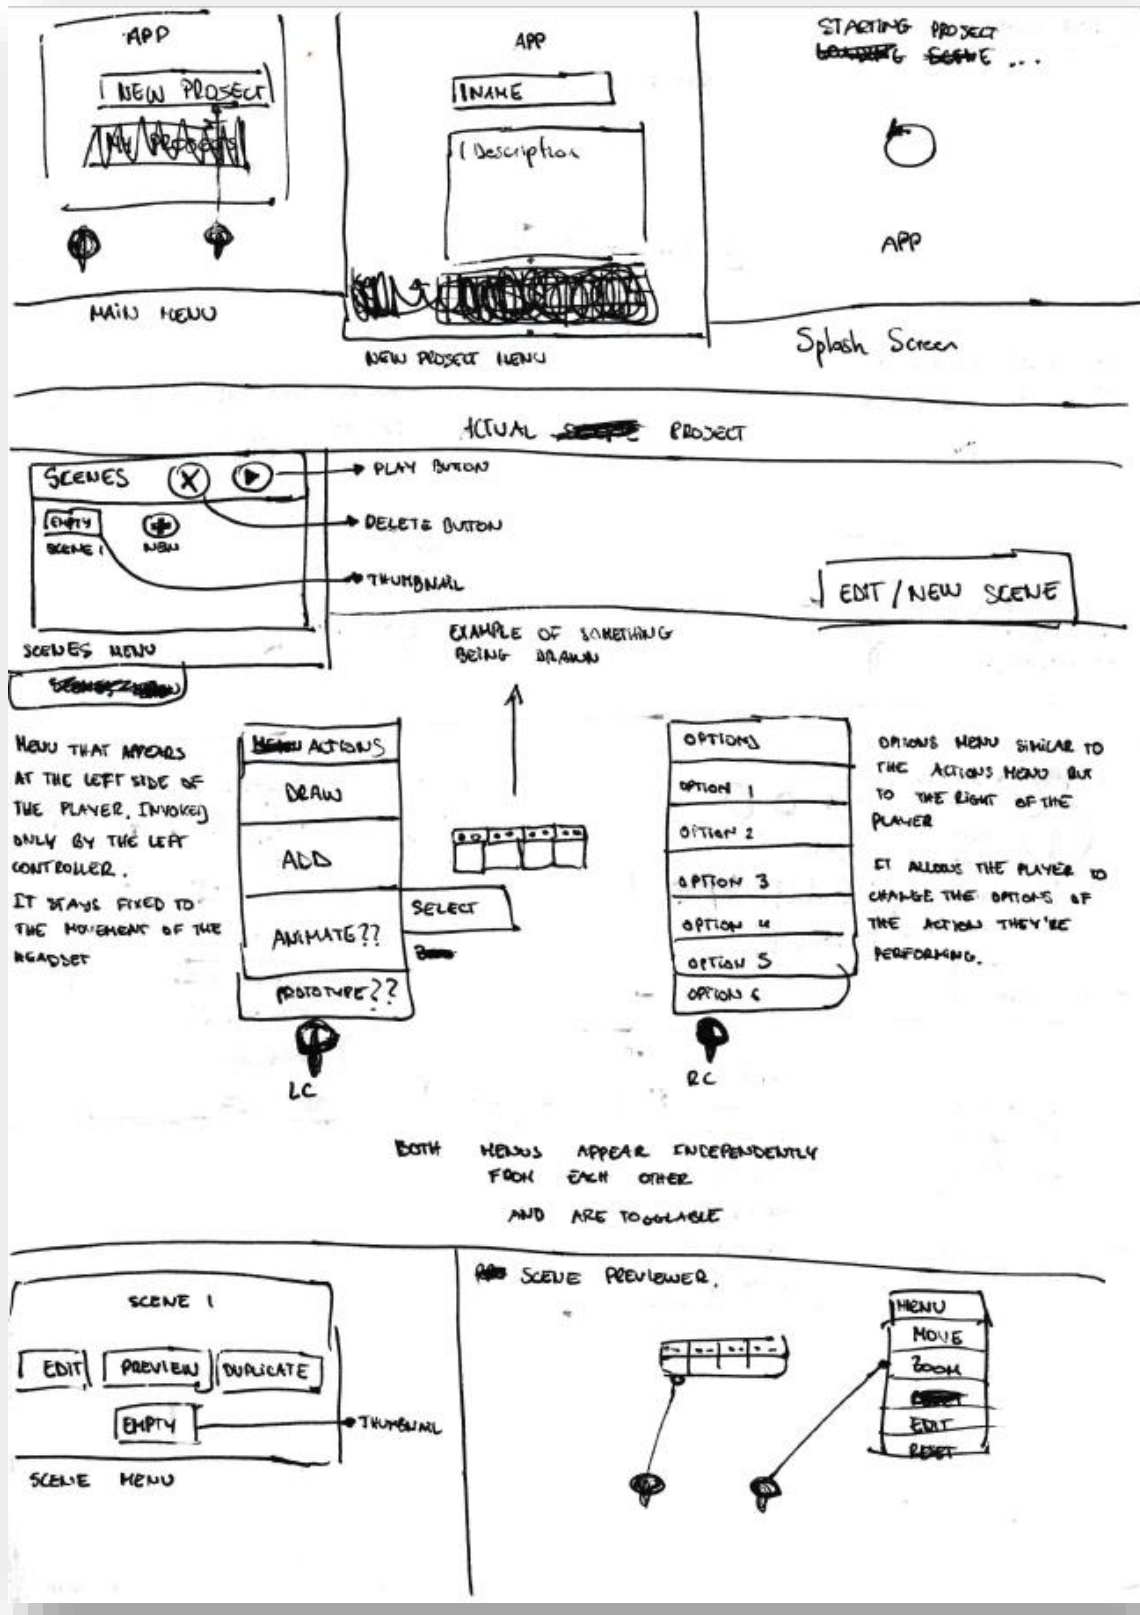 APP
NEW PROJECT
MY PROJECTS
MAIN MENU
APP
NAME
Description
NEW PROJECT MENU
STARTING PROJECT
LOADING SCENE ...
APP
Splash Screen
ACTUAL PROJECT
SCENES
EMPTY
SCENE 1
NEW
PLAY BUTTON
DELETE BUTTON
THUMBNAIL
SCENES MENU
EDIT / NEW SCENE
EXAMPLE OF SOMETHING
BEING DRAWN
MENU THAT APPEARS
AT THE LEFT SIDE OF
THE PLAYER. INVOKED
ONLY BY THE LEFT
CONTROLLER.
IT STAYS FIXED TO
THE MOVEMENT OF THE
HEADSET
ACTIONS
DRAW
ADD
ANIMATE??
PROTOTYPE??
SELECT
LC
OPTIONS
OPTION 1
OPTION 2
OPTION 3
OPTION 4
OPTION 5
OPTION 6
RC
OPTIONS MENU SIMILAR TO
THE ACTIONS MENU BUT
TO THE RIGHT OF THE
PLAYER
IT ALLOWS THE PLAYER TO
CHANGE THE OPTIONS OF
THE ACTION THEY'RE
PERFORMING.
BOTH MENUS APPEAR INDEPENDENTLY
FROM EACH OTHER
AND ARE TOGGLABLE
SCENE 1
EDIT
PREVIEW
DUPLICATE
EMPTY
THUMBNAIL
SCENE MENU
SCENE PREVIEWER.
MENU
MOVE
ZOOM
EDIT
RESET